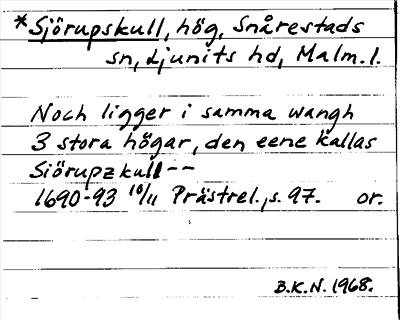 *Sjörupskull, hög, Snårestads
sn, Ljunits hd, Malm. l.
Noch ligger i samma wangh
3 stora högar, den eene kallas
Siörupzkull --
1690-93 10/11 Prästrel., s. 97. or.
B.K.N. 1968.